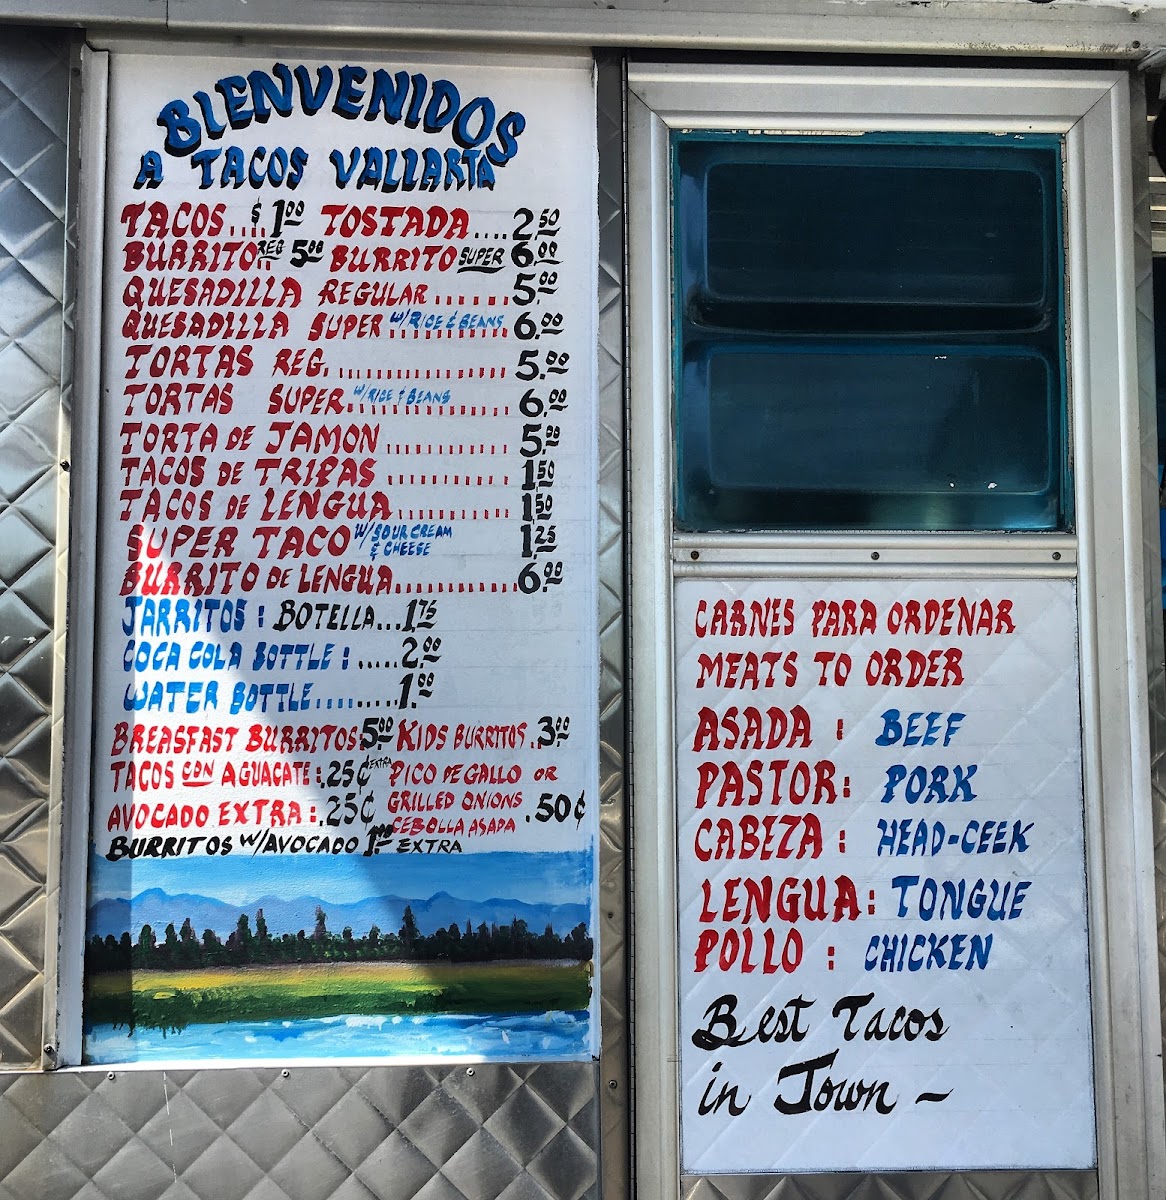 BIENVENIDOS
A TACOS VALLARTA
TACOS....$1.00 TOSTADA....2.50
BURRITO REG.. 5.00 BURRITO SUPER 6.00
QUESADILLA REGULAR.......5.00
QUESADILLA SUPER W/RICE & BEANS 6.00
TORTAS REG. ................5.00
TORTAS SUPER. W/RICE & BEANS 6.00
TORTA DE JAMON ............5.00
TACOS DE TRIPAS ............1.50
TACOS DE LENGUA............1.50
SUPER TACO W/SOUR CREAM & CHEESE 1.25
BURRITO DE LENGUA............6.00
JARRITOS : BOTELLA...1.75
COCA COLA BOTTLE : .....2.00
WATER BOTTLE.........1.00
BREASFAST BURRITOS 5.00 KIDS BURRITOS..3.00
TACOS CON AGUACATE : .25¢ EXTRA PICO DE GALLO OR
AVOCADO EXTRA : .25¢ GRILLED ONIONS .50¢
CEBOLLA ASADA
BURRITOS W/AVOCADO 1.00 EXTRA
CARNES PARA ORDENAR
MEATS TO ORDER
ASADA : BEEF
PASTOR: PORK
CABEZA : HEAD-CEEK
LENGUA: TONGUE
POLLO : CHICKEN
Best Tacos
in Town –